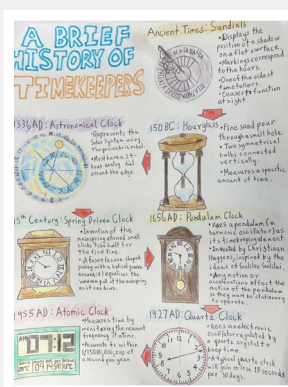 A BRIEF
HISTORY OF
TIMEKEEPERS
Ancient Times: Sundials
•Displays the
position of a shadow
on a flat surface.
•Markings correspond
to the hours.
•One of the oldest
timetellers
•Ceases to function
at night
1336 AD: Astronomical Clock
•Represents the
Solar System using
the geocentric model
•Most have a 24-
hour analog dial
around the edge.
150 BC: Hourglass
•Fine sand pour
through a small hole.
•Two symmetrical
bulbs connected
vertically.
•Measures a specific
amount of time.
15th Century: Spring Driven Clock
•Invention of the
mainspring allowed small
clocks to be built for
the first time.
•A fusee (a cone shaped
pulley with a helical groove
around it) equalises the
uneven pull of the mainspring
as it ran down.
1656 AD: Pendulum Clock
•Uses a pendulum (a
harmonic oscillator) as
its timekeeping element
•Invented by Christiaan
Huygens, inspired by the
ideas of Galileo Galilei.
•Any motion or
accelerations affect the
motion of the pendulum
so they must be stationary
to operate.
1955 AD: Atomic Clock
•Measures time by
monitoring the resonant
frequency of atoms.
•Accurate to within
of
a second per year
07:12
1927 AD: Quartz Clock
•Uses an electronic
oscillator regulated by
a quartz crystal to
keep time
•A typical quartz clock
will gain or lose 15 seconds
per 30 days.